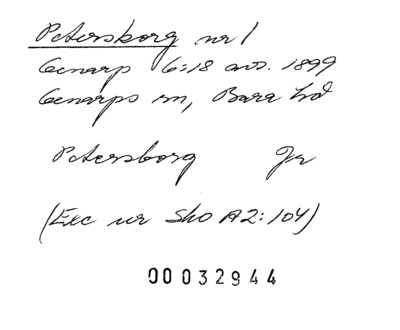 Petersborg nr 1
Genarp 6:18 avs. 1899
Genarps sn, Bara hd
Petersborg Gr
(Exc ur Sko A2:104)
00032944